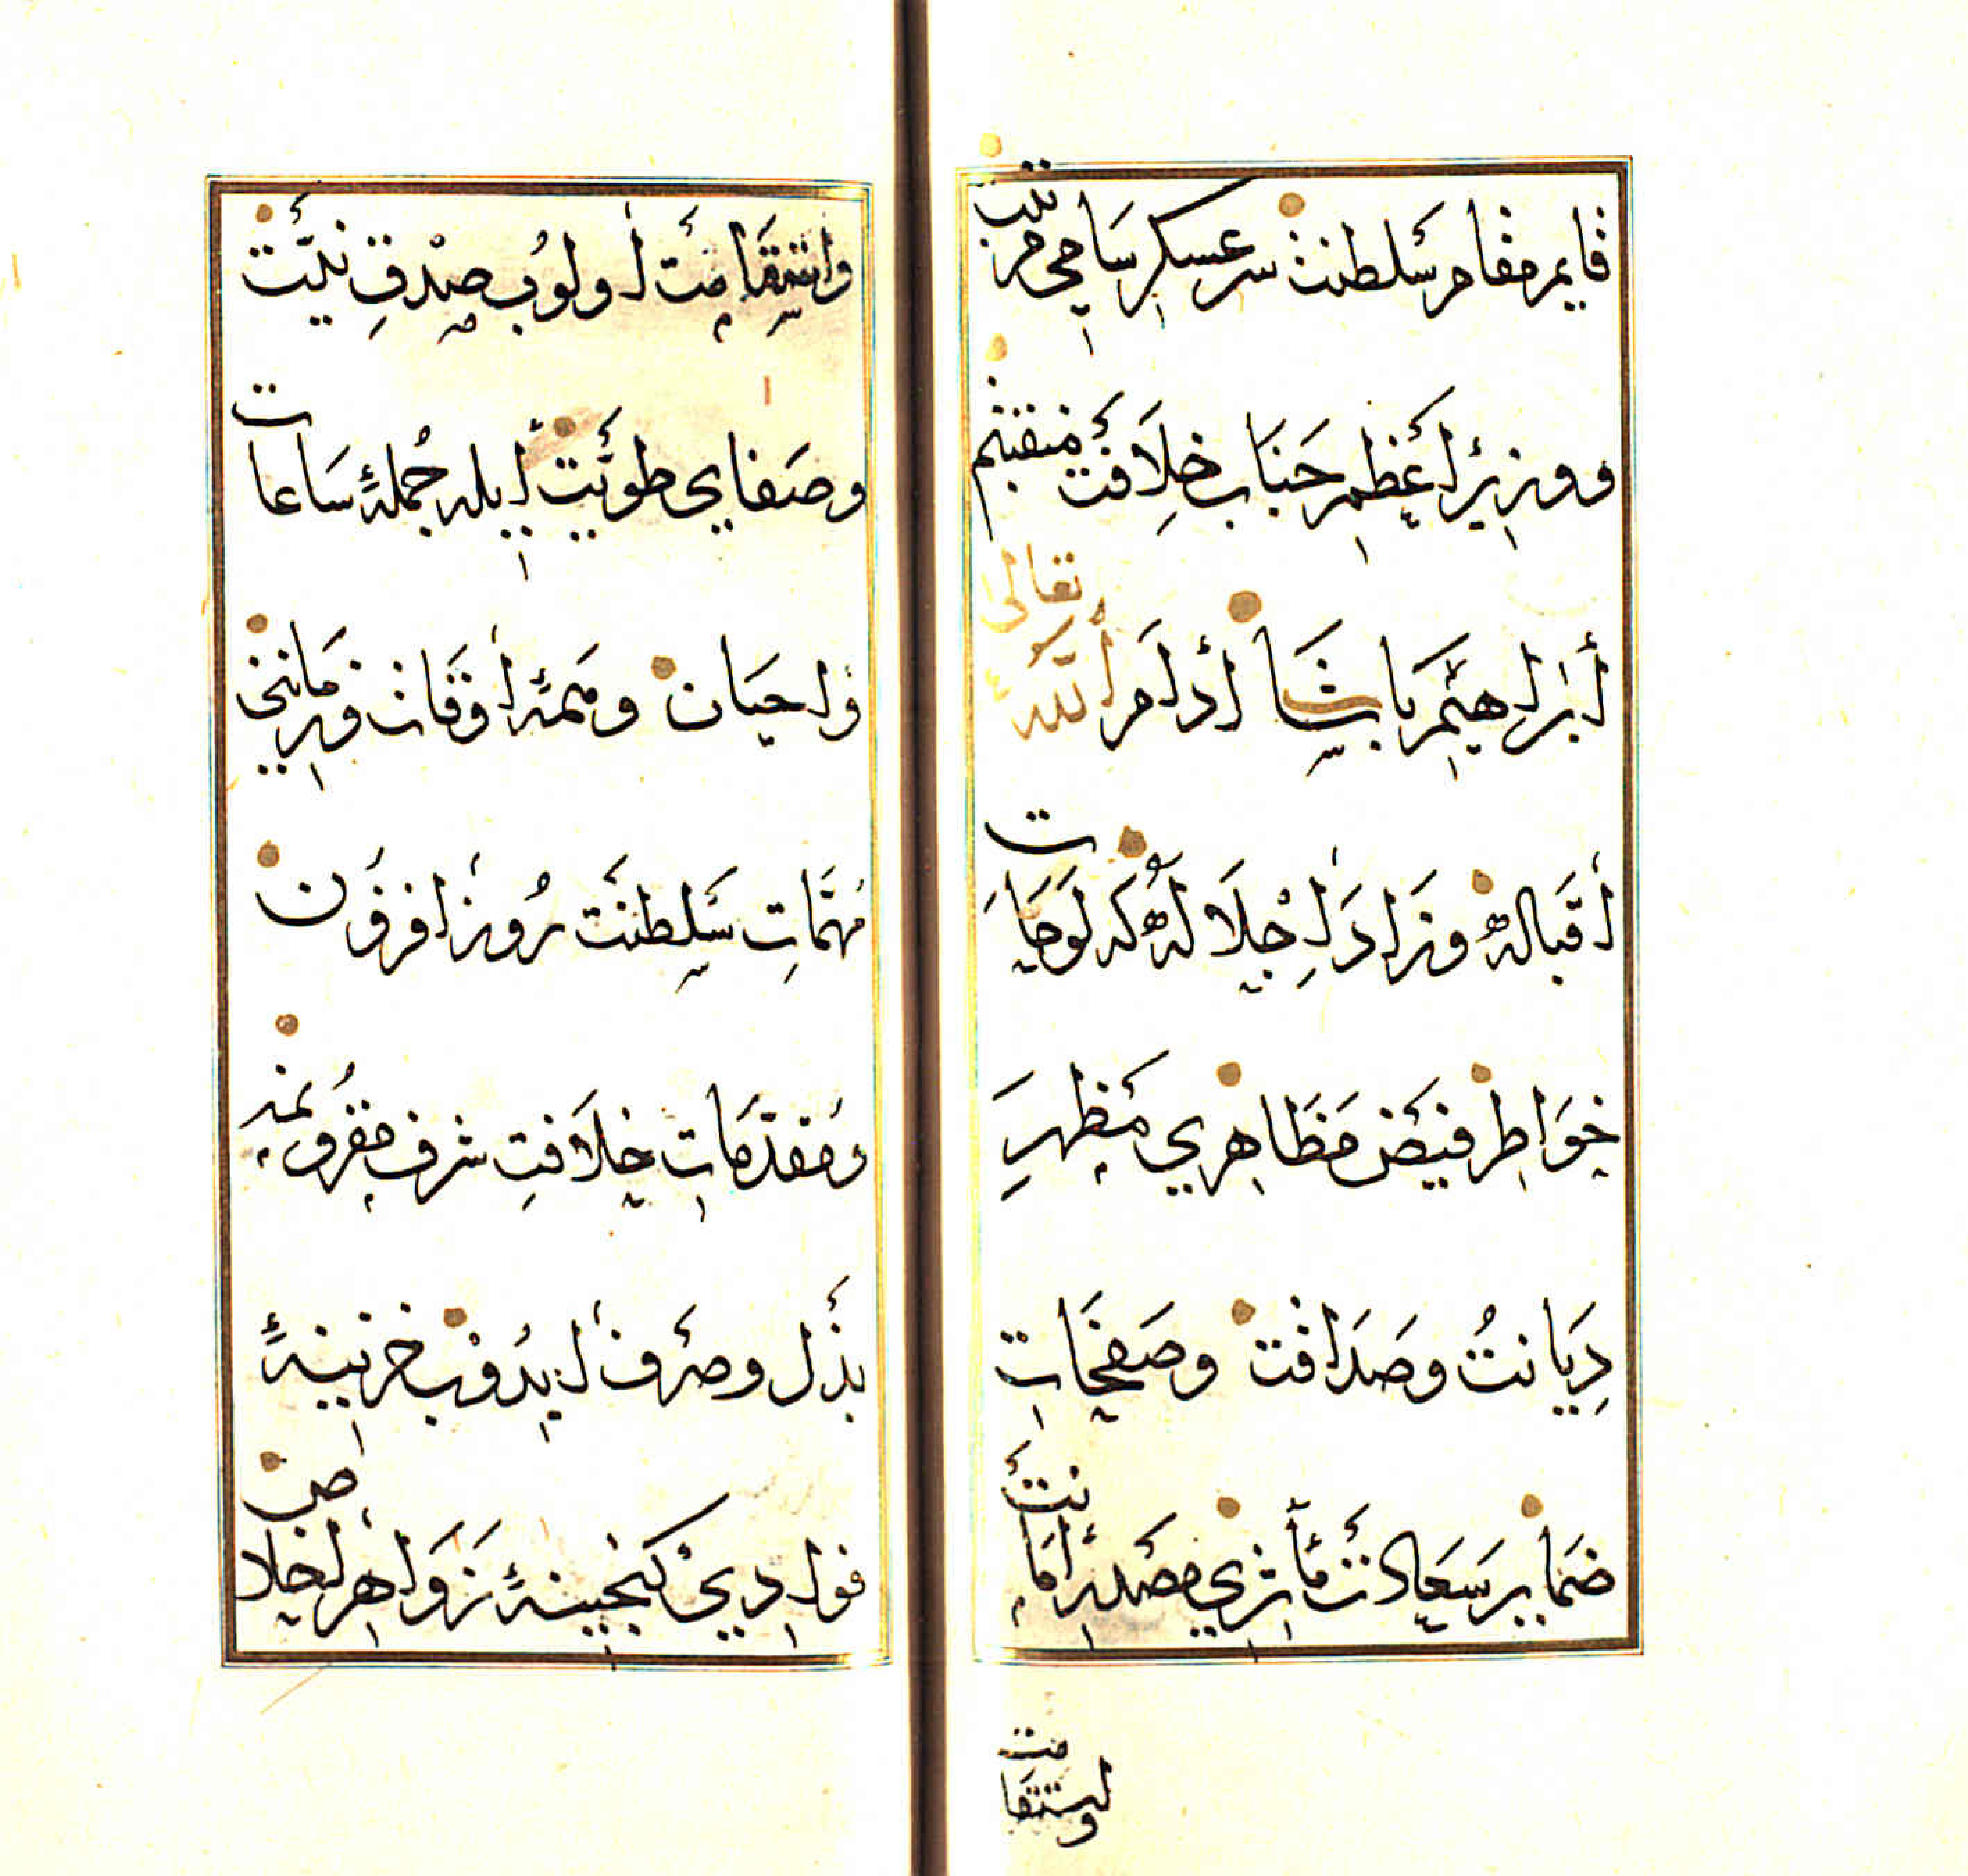 قایم مقام سلطنت سرعسکر سامی مرتبت
ووزیر اعظم جناب خلافت منقبتم
ابراهیم پاشا ادام الله تعالی
اقباله وزاد اجلاله که لوحات
خواطر فیض مظاهری مظهر
دیانت وصداقت وصفحات
ضمایر سعادت مأثری مصدر امانت
واستقامت
واستقامت اولوب صدق نیت
وصفای طویت ایله جمله ساعات
واحیان وهمه اوقات وزماننی
مهمات سلطنت روز افزون
ومقدمات خلافت شرف مقرونمه
بذل وصرف ایدوب خزینه
فوادی کنجینه زواهر اخلاص